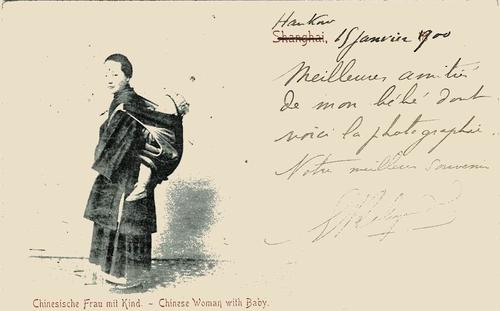 Hankow
Shanghai, 15 janvier 1900
Meilleures amitiés
de mon bébé dont
voici la photographie.
Notre meilleur souvenir
Chinesische Frau mit Kind. - Chinese Woman with Baby.